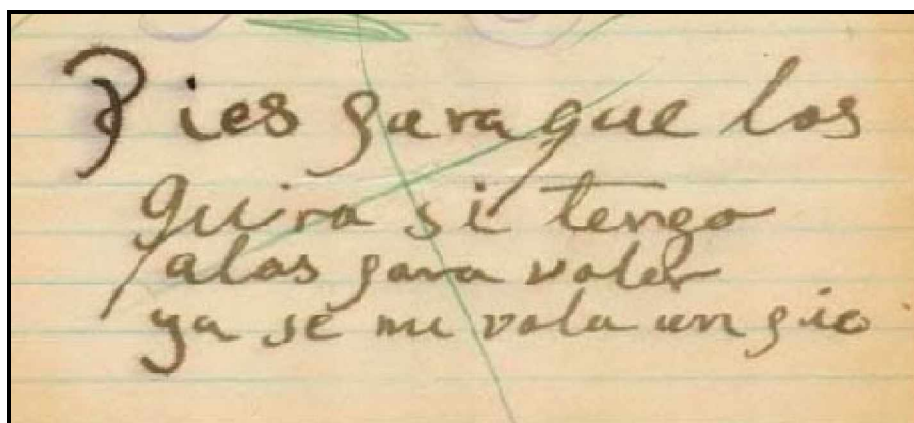 Pies para que los
quira si tengo
alas para voler
ya se me vola un pie